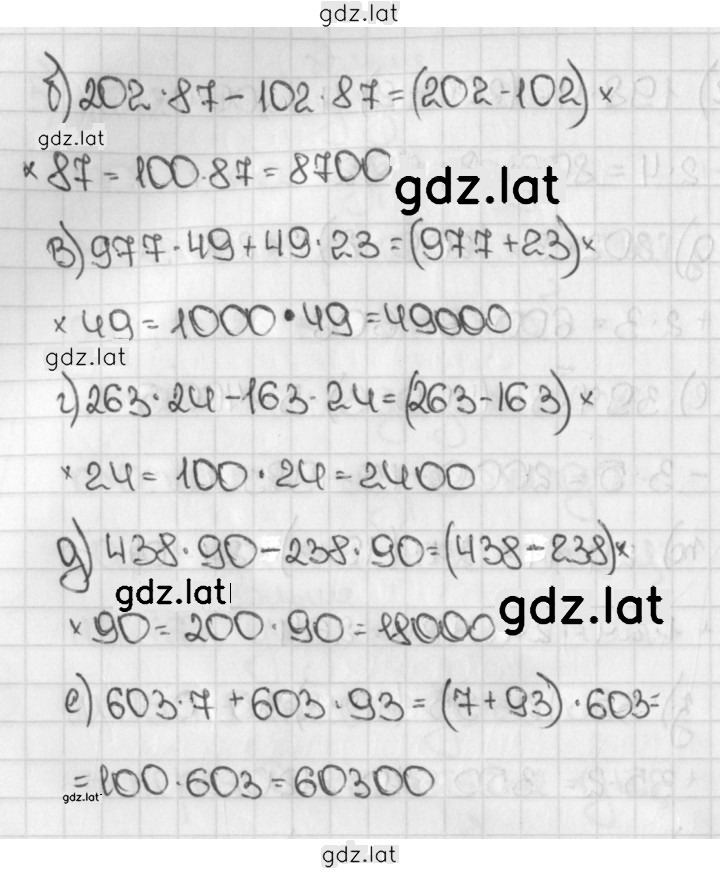 gdz.lat
б) 202·87-102·87=(202-102)×
gdz.lat
×87=100·87=8700
gdz.lat
в) 977·49+49·23=(977+23)×
×49=1000·49=49000
gdz.lat
г) 263·24-163·24=(263-163)×
×24=100·24=2400
д) 438·90-238·90=(438-238)×
gdz.lat
gdz.lat
×90=200·90=18000
е) 603·7+603·93=(7+93)·603=
=100·603=60300
gdz.lat
gdz.lat